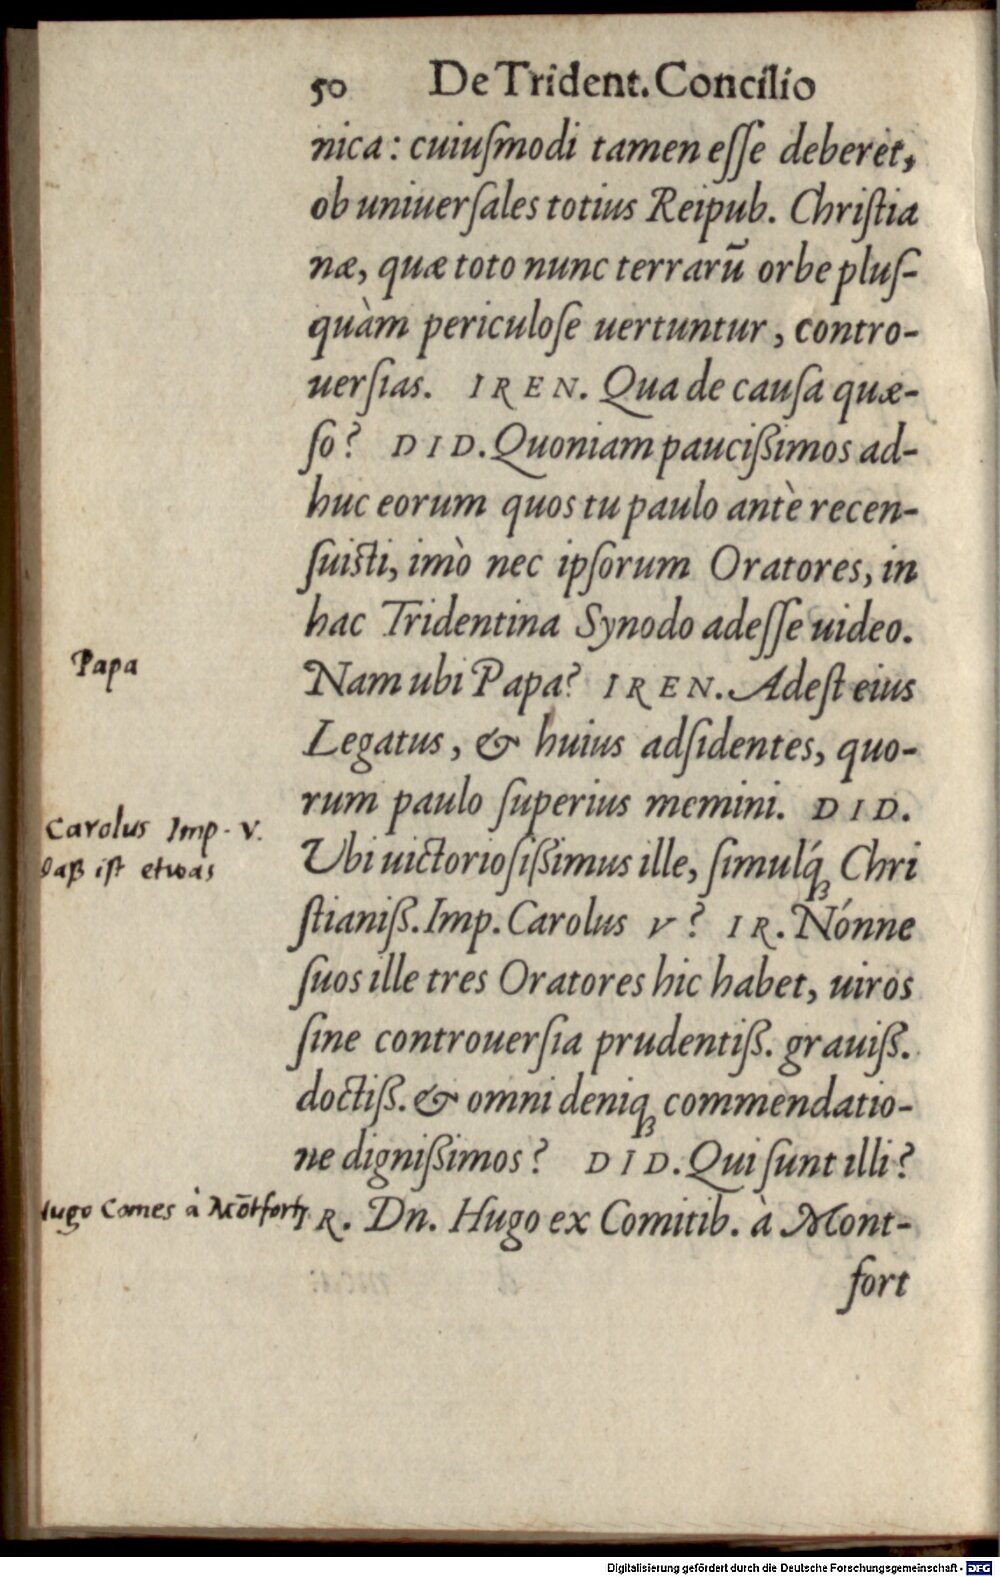 50 De Trident. Concilio
nica: cuiuſmodi tamen eſſe deberet,
ob uniuerſales totius Reipub. Chriſtia
næ, quæ toto nunc terrarū orbe pluſ-
quàm periculoſe uertuntur, contro-
uerſias. IREN. Qua de cauſa quæ-
ſo? DID. Quoniam pauciſsimos ad-
huc eorum quos tu paulo antè recen-
ſuisti, imò nec ipſorum Oratores, in
hac Tridentina Synodo adeſſe uideo.
Papa
Nam ubi Papa? IREN. Adeſt eius
Legatus, & huius adſidentes, quo-
rum paulo ſuperius memini. DID.
Carolus Imp. V.
daß iſt etwas
Ubi uictorioſiſsimus ille, ſimulq́ꝫ Chri
ſtianiß. Imp. Carolus V? IR. Nónne
ſuos ille tres Oratores hic habet, uiros
ſine controuerſia prudentiß. grauiß.
doctiß. & omni deniqꝫ commendatio-
ne digniſsimos? DID. Qui ſunt illi?
Hugo Comes à Mōtfort
IR. Dn. Hugo ex Comitib. à Mont-
fort
Digitalisierung gefördert durch die Deutsche Forschungsgemeinschaft - DFG